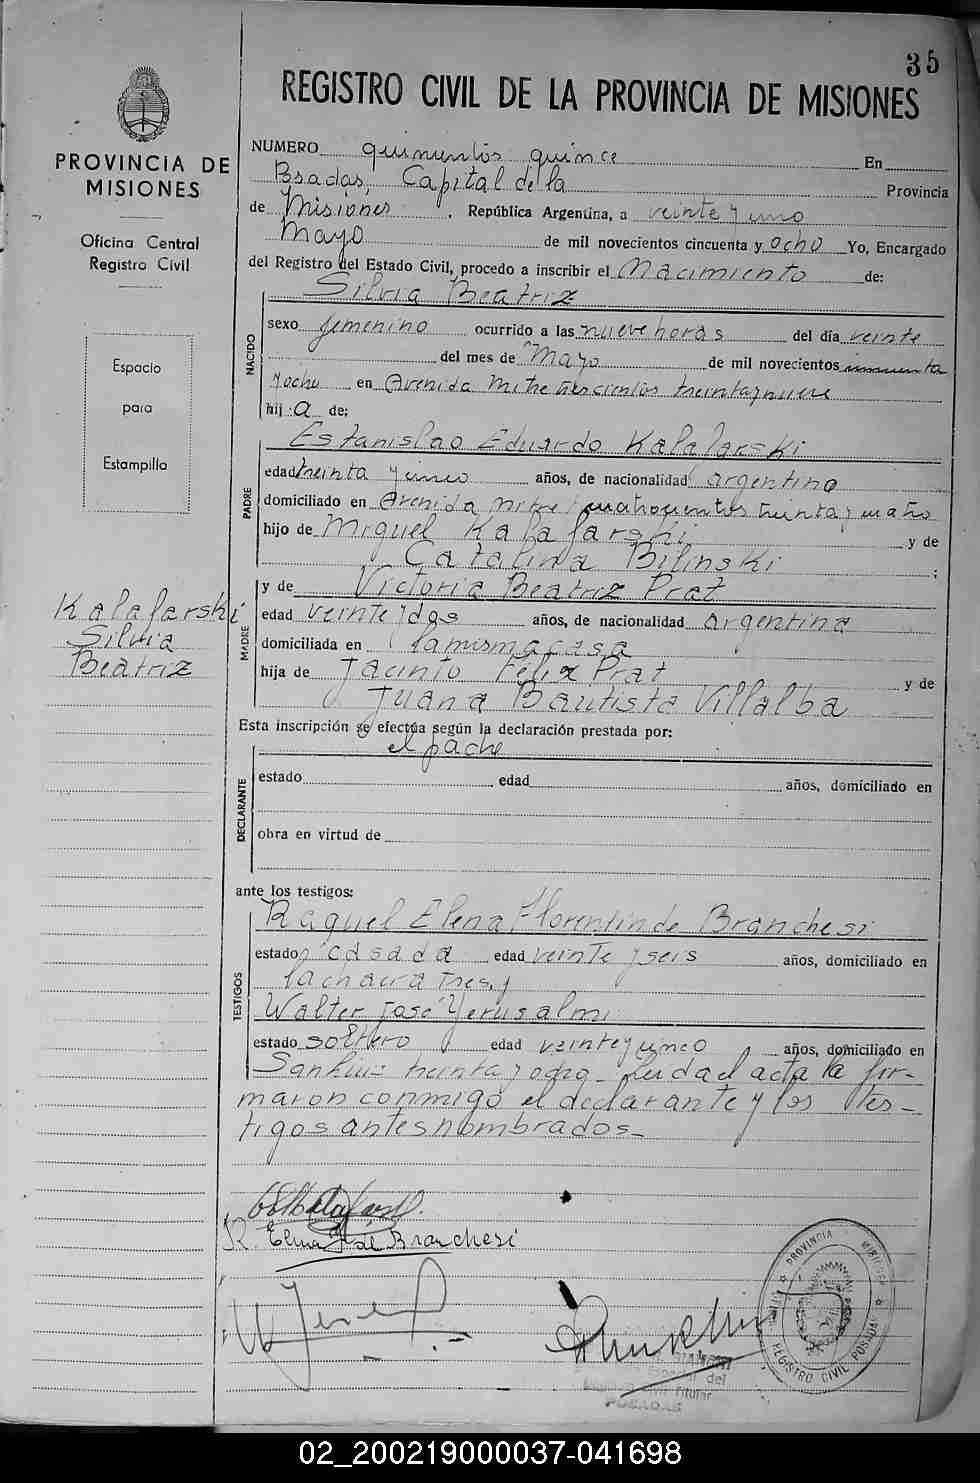 35
REGISTRO CIVIL DE LA PROVINCIA DE MISIONES
PROVINCIA DE
MISIONES
Oficina Central
Registro Civil
Espacio
para
Estampilla
Kalafarski
Silvia
Beatriz
NUMERO quinientos quince En
Posadas, Capital de la Provincia
de Misiones , República Argentina, a veinte y uno
Mayo de mil novecientos cincuenta y ocho Yo, Encargado
del Registro del Estado Civil, procedo a inscribir el Nacimiento de:
Silvia Beatriz
NACIDO
sexo femenino ocurrido a las nueve horas del día veinte
del mes de Mayo de mil novecientos cincuenta
y ocho en Avenida Mitre trescientos treinta y nueve
hij a de:
Estanislao Eduardo Kalafarski
PADRE
edad treinta y cinco años, de nacionalidad argentina
domiciliado en Avenida Mitre cuatrocientos treinta y cuatro
hijo de Miguel Kalafarski y de
Catalina Bilinski ;
y de Victoria Beatriz Prat
MADRE
edad veinte y dos años, de nacionalidad argentina
domiciliada en la misma casa
hija de Jacinto Félix Prat y de
Juana Bautista Villalba
Esta inscripción se efectúa según la declaración prestada por:
el padre
DECLARANTE
estado edad años, domiciliado en
obra en virtud de
ante los testigos:
TESTIGOS
Raquel Elena Florentin de Branchesi
estado casada edad veinte y seis años, domiciliado en
la chacra tres, y
Walter José Yerusalmi
estado soltero edad veinte y cinco años, domiciliado en
San Luis treinta y ocho - Leida el acta la fir-
maron conmigo el declarante y los tes-
tigos antes nombrados-
R. Elena F. de Branchesi
PROVINCIA MISIONES
REGISTRO CIVIL POSADAS
del
Titular
POSADAS
02_200219000037-041698